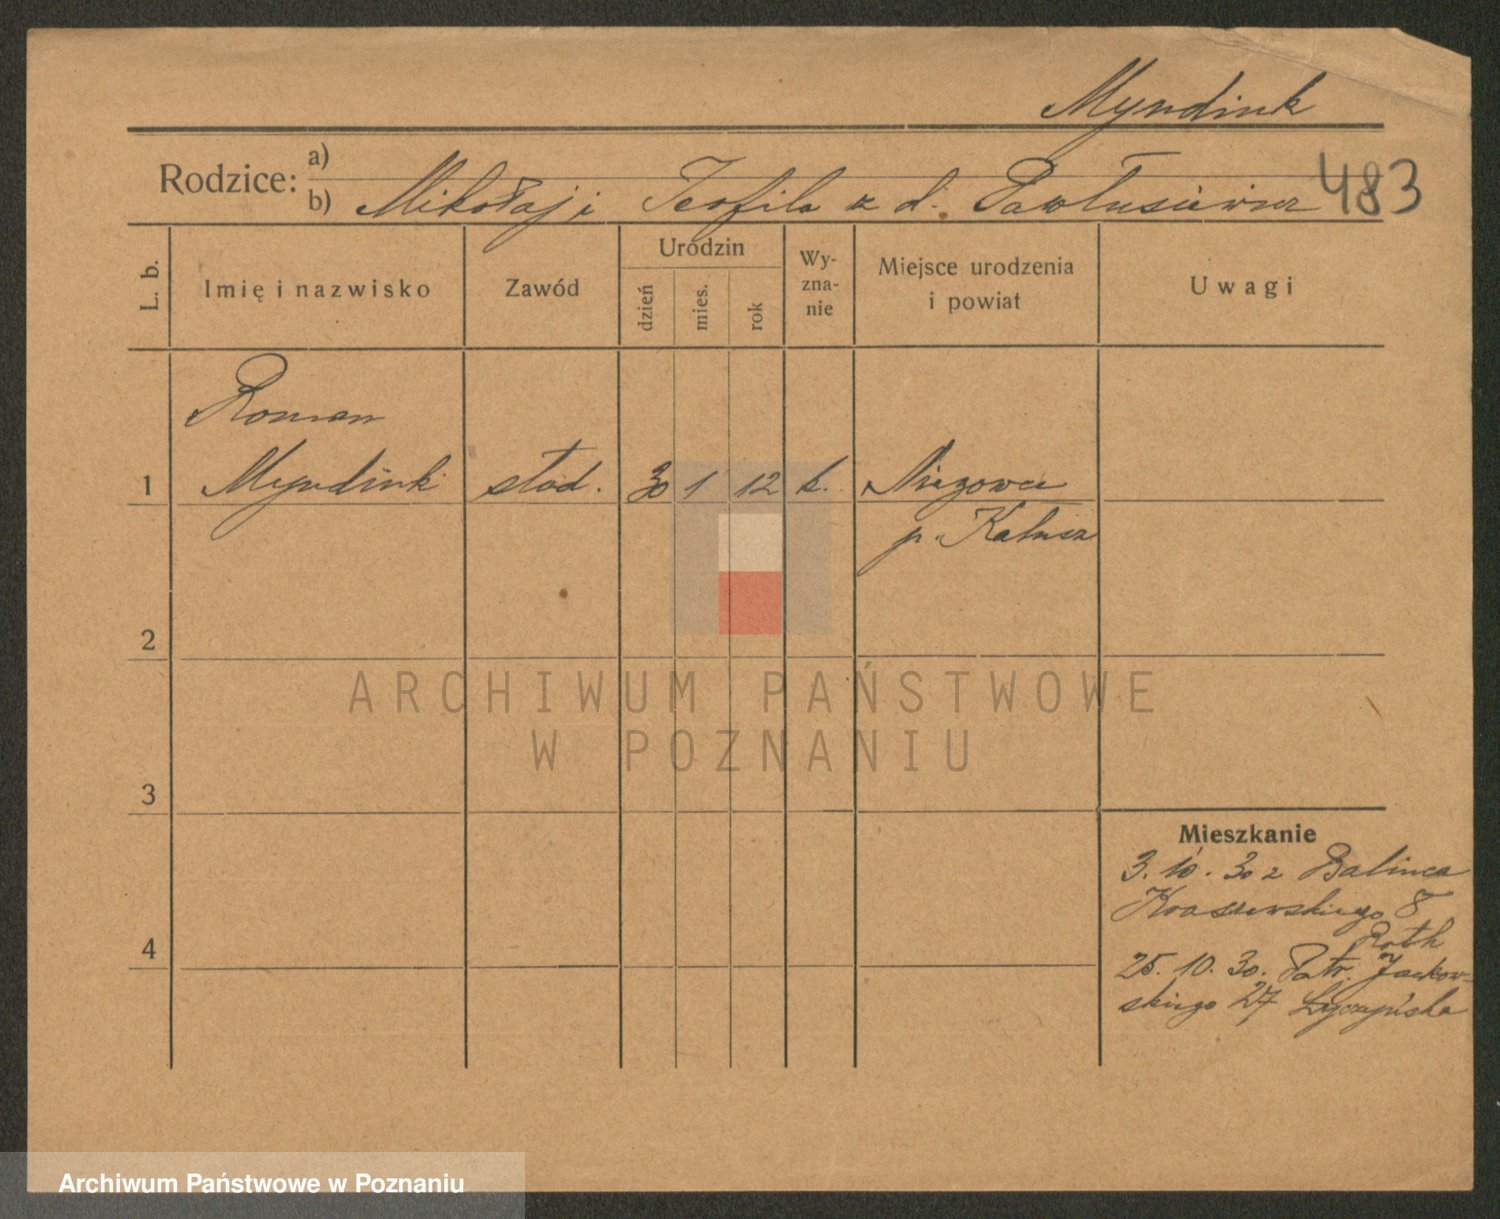 Myndiuk
483
Rodzice: a)
b) Mikołaj i Teofila z d. Pawłusiewicz
L. b.
Imię i nazwisko
Zawód
Urodzin
dzień
mies.
rok
Wy-
zna-
nie
Miejsce urodzenia
i powiat
Uwagi
Roman
1 Myndiuk stud. 30 1 12 k.
p. Kałusz
2
3
4
Mieszkanie
3. 10. 30 z
Kraszewskiego 8
Roth
25. 10. 30. Patr. Jackow-
skiego 27
ARCHIWUM PAŃSTWOWE
W POZNANIU
Archiwum Państwowe w Poznaniu